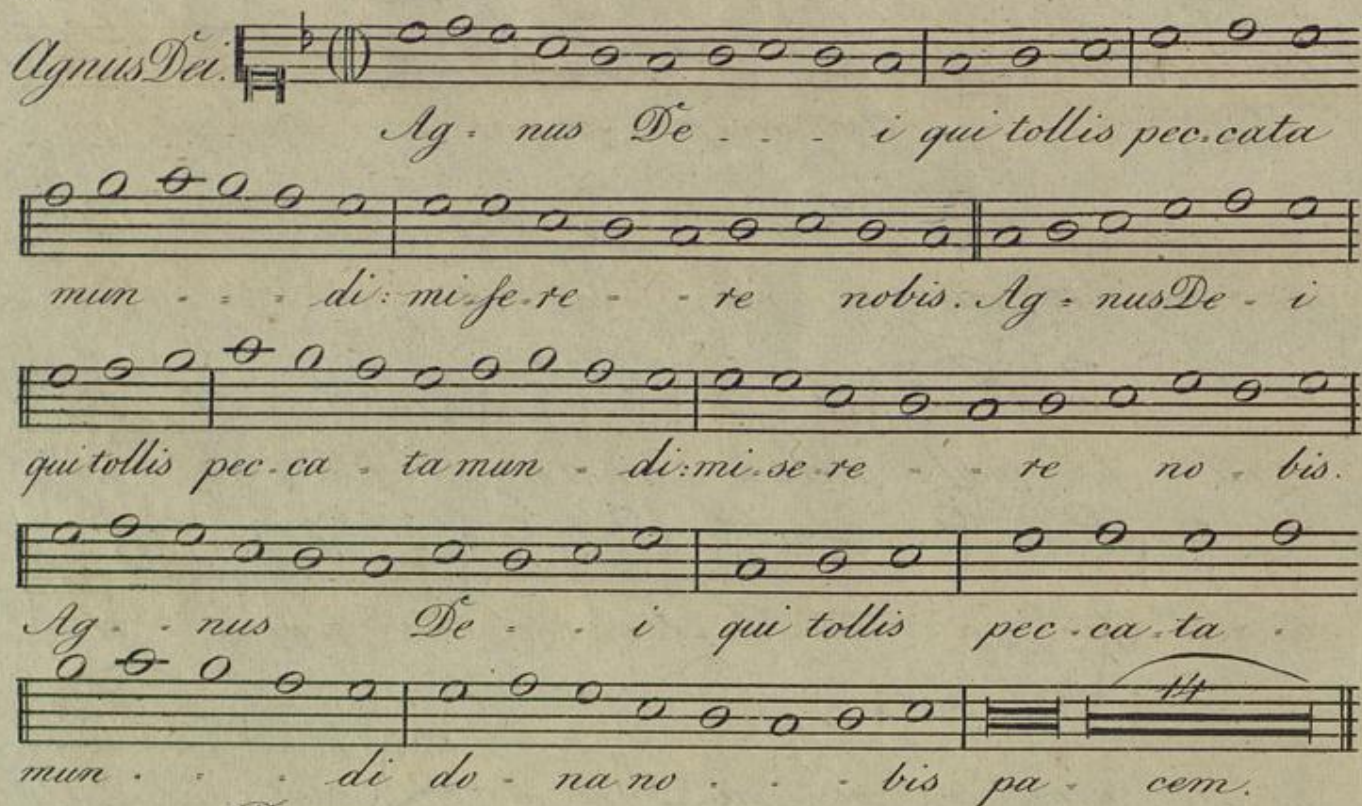 Agnus Dei.
Ag - nus De - - - i qui tollis pec-cata
mun - - - di: mi-se-re - - re nobis. Ag - nus De - i
qui tollis pec-ca - ta mun - di: mi-se-re - - re no - bis.
Ag - - nus De - - i qui tollis pec-ca-ta -
14
mun - - - di do - na no - - - bis pa - cem.